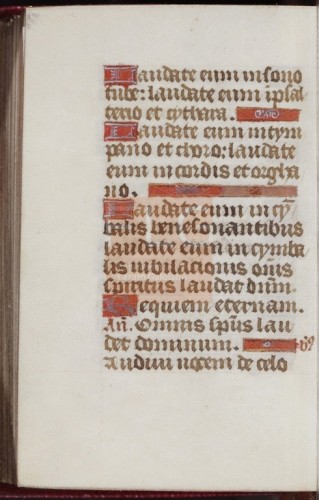 Laudate eum in sono
tube: laudate eum i psal
terio et cythara.
Laudate eum in tym
pano et choro: laudate
eum in cordis et orgha
no.
Laudate eum in cȳ
balis benesonantibus
laudate eum in cymba
lis iubilacionis om̄s
spiritus laudat dn̄m.
Requiem eternam.
An̄. Omnis sp̄us lau
det dominum. v̄
Audivi vocem de celo